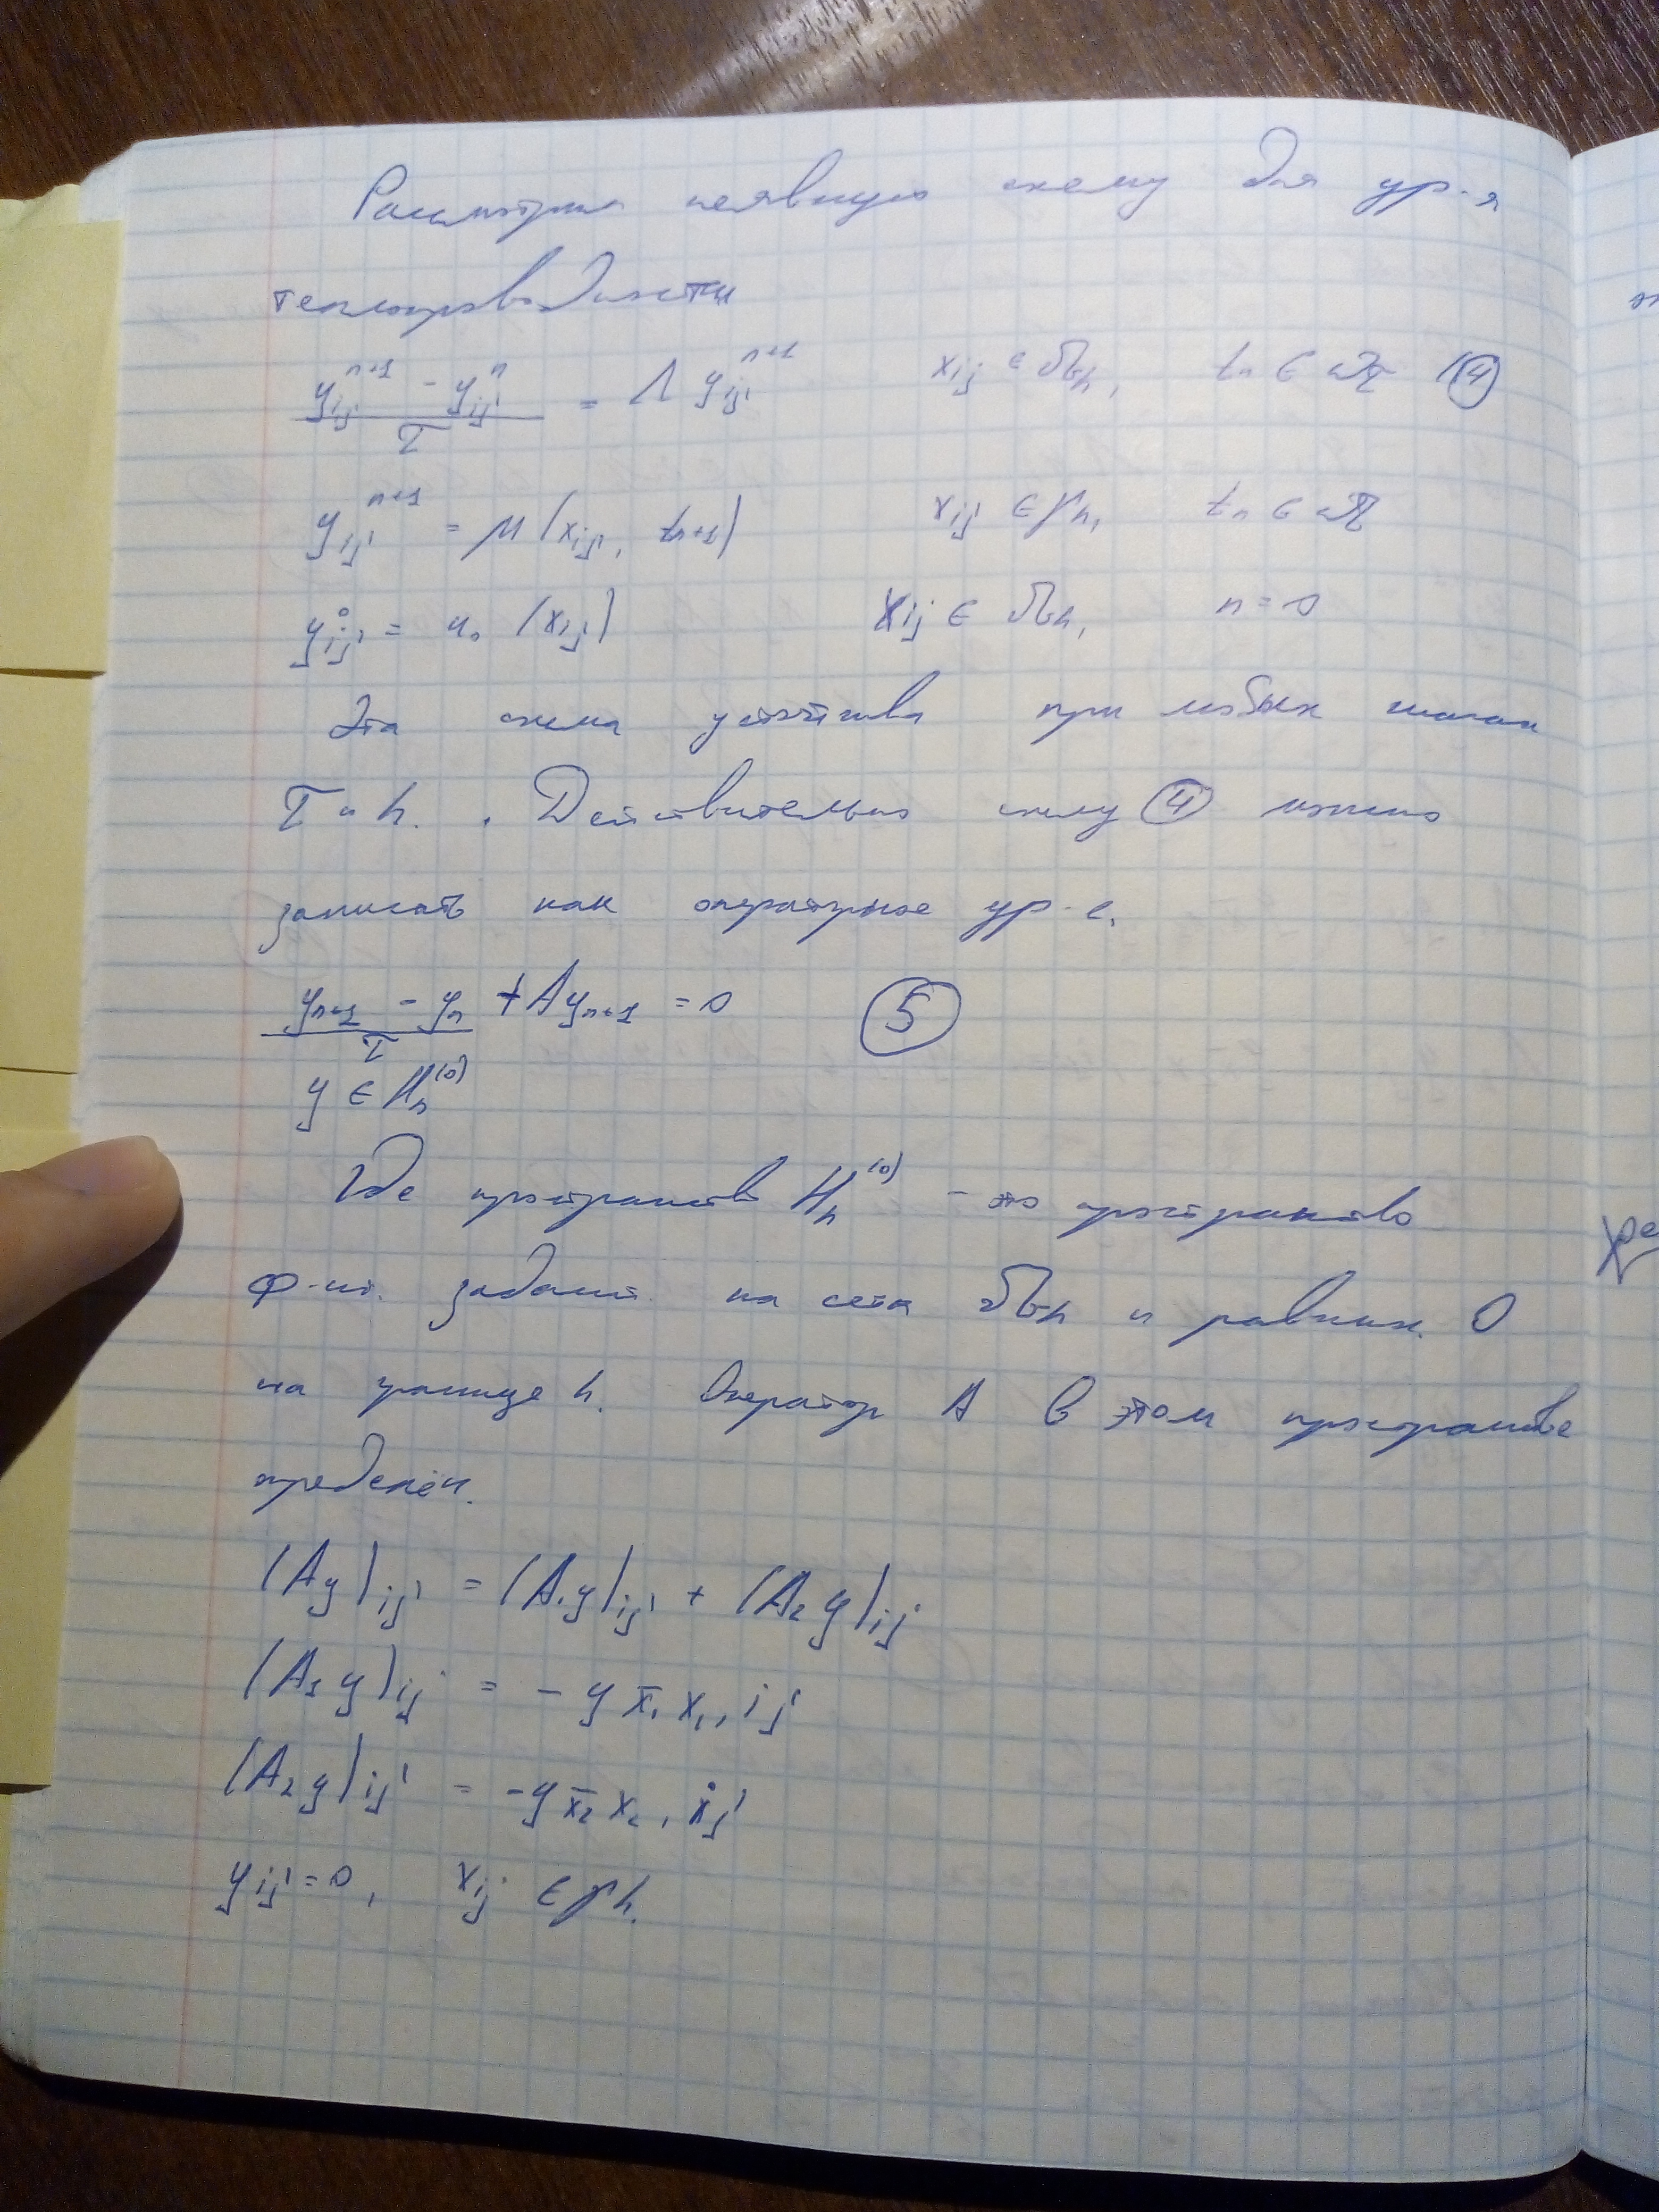 Рассмотрим неявную схему для ур-я
теплопроводности
(y_ij^{n+1} - y_ij^n) / τ = Λ y_ij^{n+1}   x_ij ∈ Ω_h,   t_n ∈ ω_τ (4)
y_ij^{n+1} = μ(x_ij, t_{n+1})   x_ij ∈ γ_h,   t_n ∈ ω_τ
y_ij^0 = u_0 (x_ij)   x_ij ∈ Ω_h,   n = 0
Эта схема устойчива при любых шагах
τ и h. . Действительно схему (4) можно
записать как операторное ур-е.
(y_{n+1} - y_n) / τ + A y_{n+1} = 0   (5)
y ∈ H_h^{(0)}
Где пространство H_h^{(0)} - это пространство
ф-ий. задан. на сетке Ω_h и равных. 0
на границе h. Оператор A в этом пространстве
определён.
(Ay)_ij = (A_1 y)_ij + (A_2 y)_ij
(A_1 y)_ij = - y_{x̄_1 x_1, ij}
(A_2 y)_ij = - y_{x̄_2 x_2, ij}
y_ij = 0,   x_ij ∈ γ_h.